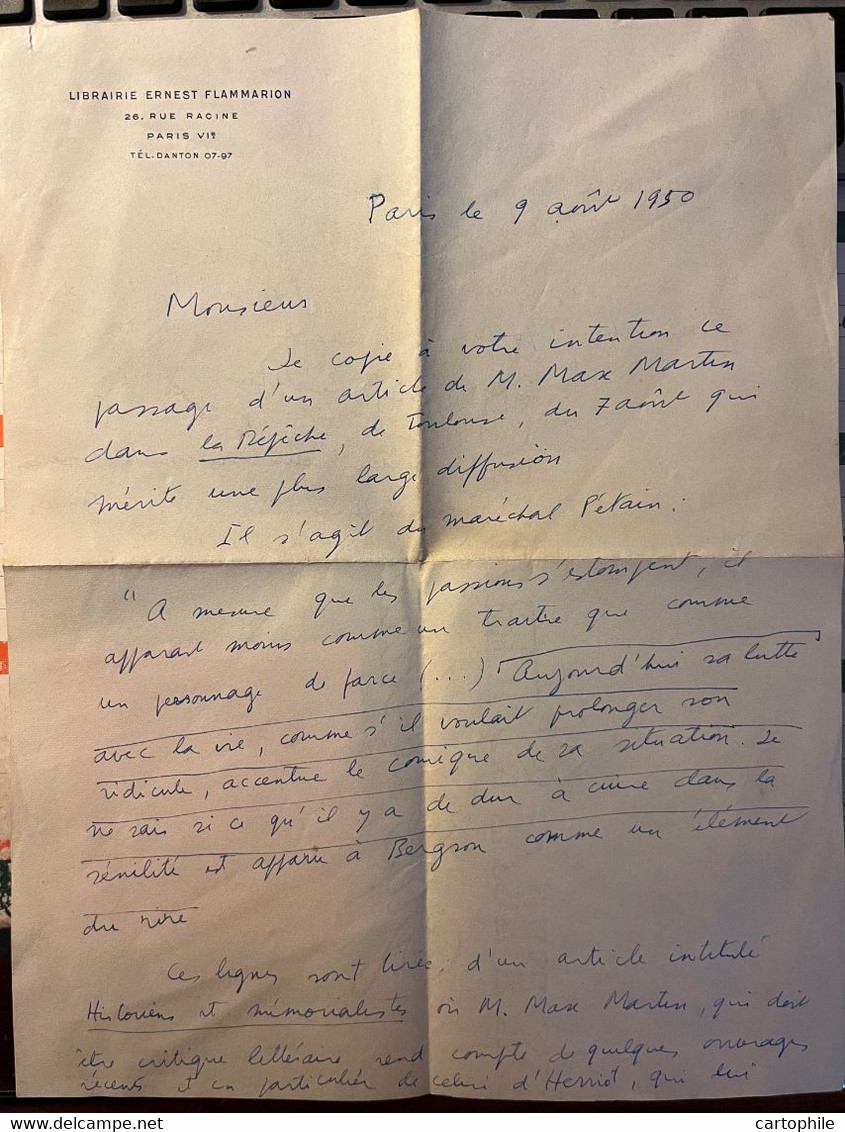 LIBRAIRIE ERNEST FLAMMARION
26, RUE RACINE
PARIS VIe
TÉL. DANTON 07-97
Paris le 9 août 1950
Monsieur
Je copie à votre intention ce
passage d'un article de M. Max Martin
dans la Dépêche, de Toulouse, du 7 août qui
mérite une plus large diffusion
Il s'agit du maréchal Pétain :
"A mesure que les passions s'estompent, il
apparait moins comme un traitre que comme
un personnage de farce (...) Aujourd'hui sa lutte
avec la vie, comme s'il voulait prolonger son
ridicule, accentue le comique de sa situation. Je
ne sais si ce qu'il y a de dur à cuire dans la
sénilité est apparu à Bergson comme un élément
du rire
Ces lignes sont tirées d'un article intitulé
Historiens et mémorialistes où M. Max Martin, qui doit
être critique littéraire rend compte de quelques ouvrages
récents et en particulier de celui d'Herriot, qui lui
cartophile